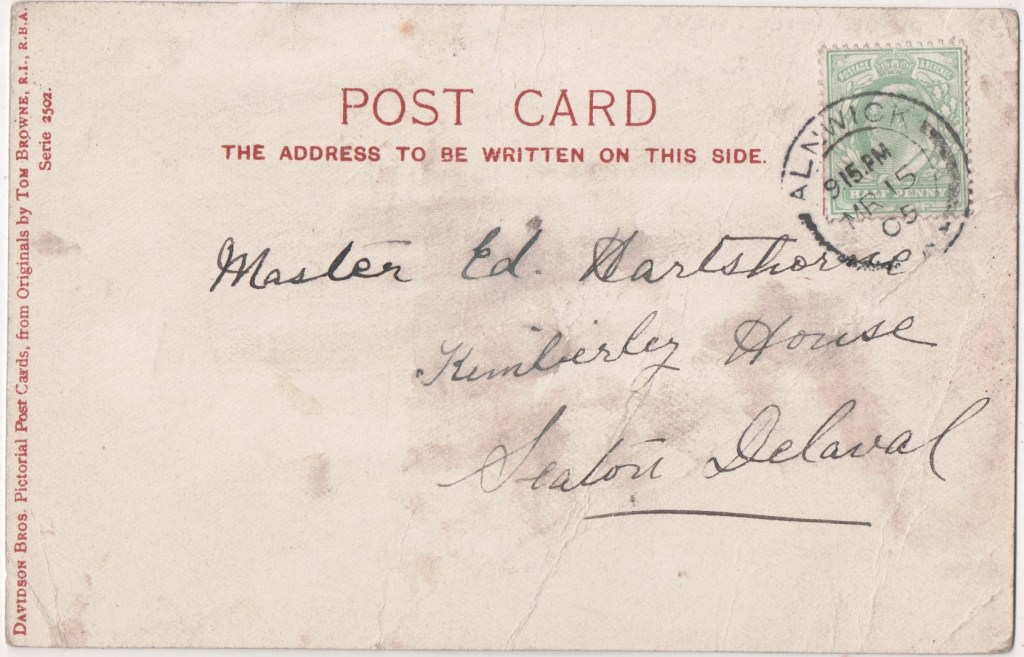 POST CARD
THE ADDRESS TO BE WRITTEN ON THIS SIDE.
POSTAGE & REVENUE
HALF PENNY
ALNWICK
9 15.PM
MR 15
05
Master Ed. Hartshorne
Kimberley House
Seaton Delaval
DAVIDSON BROS. Pictorial Post Cards, from Originals by TOM BROWNE, R.I., R.B.A.
Serie 2502.